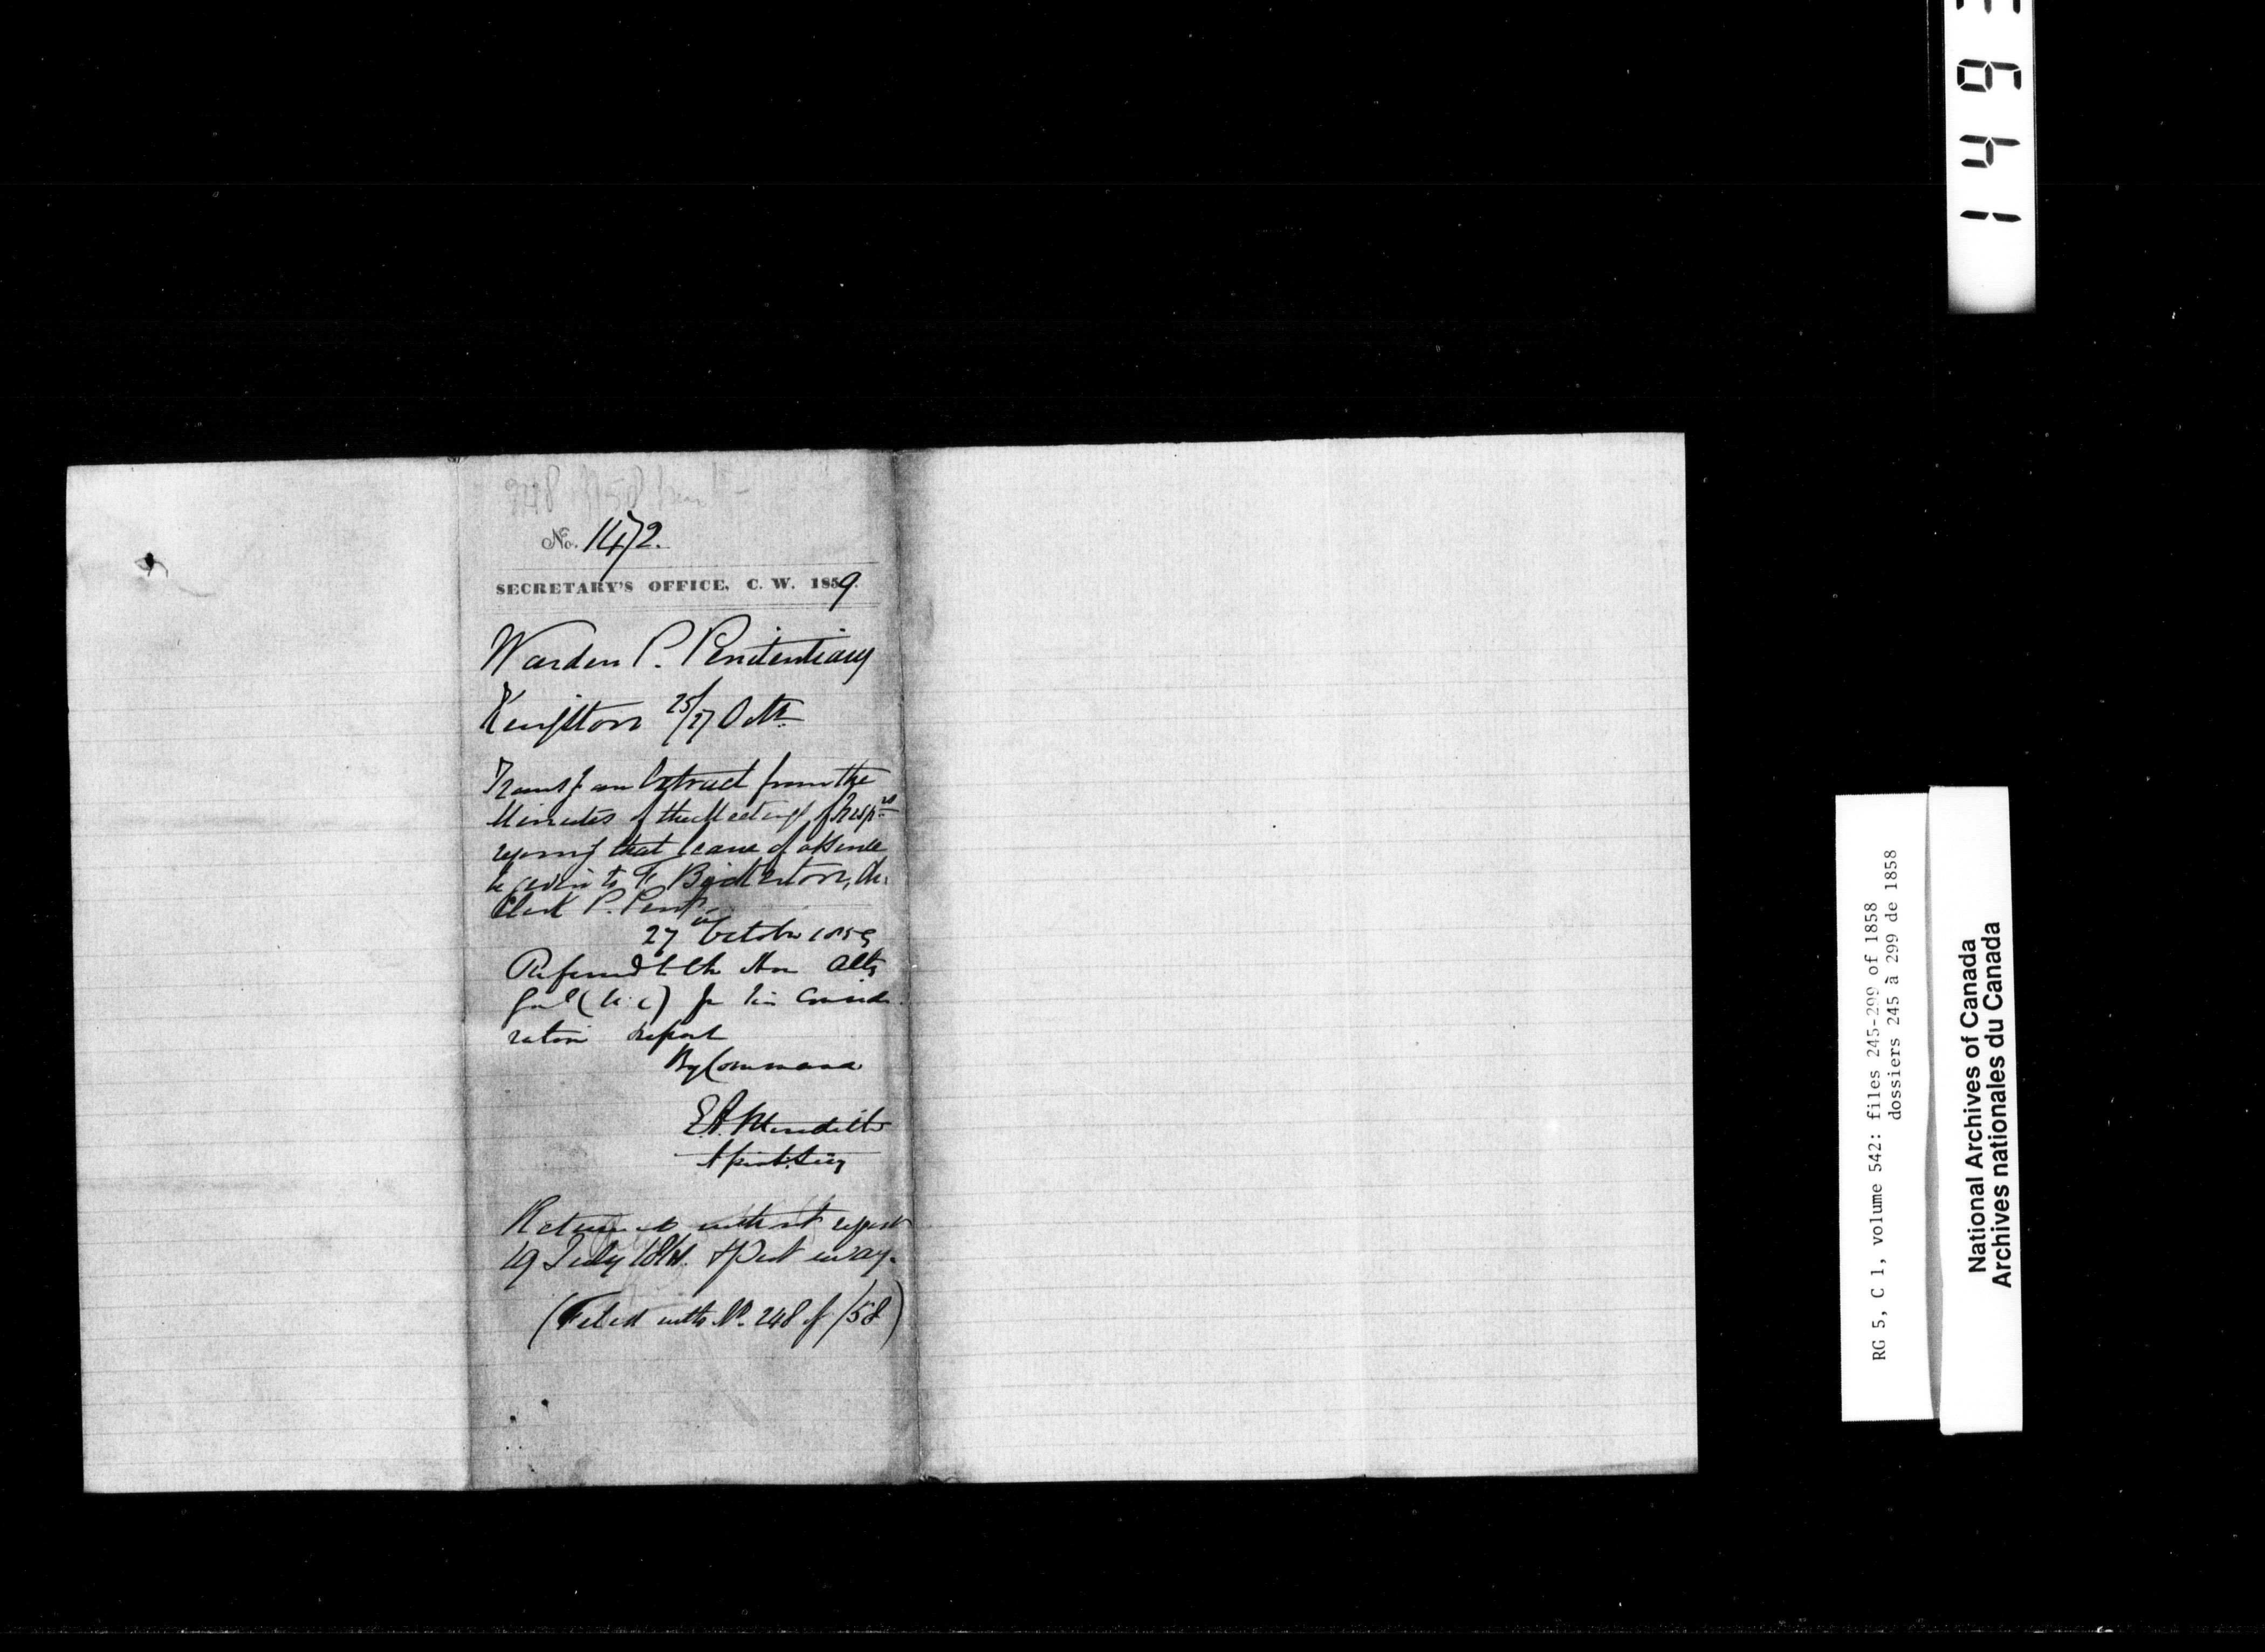 248 of 58
No. 1472.
SECRETARY'S OFFICE, C. W. 1859.
Warden P. Penitentiary
Kingston 25/27 Octr
Transg an Extract from the
Minutes of the Meetings of Insprs
that leave of absence
be given to F. Bickerton,
Clerk P. Penty
27 October 1859
Referred to the Hon Atty
Genl (U.C) for his Conside
ration & report
By Command
E.A. Meredith
Asst. Secy
Returned without report
19 July & put away.
(Filed with No. 248 of /58)
1493
RG 5, C 1, volume 542: files 245-299 of 1858
dossiers 245 à 299 de 1858
National Archives of Canada
Archives nationales du Canada